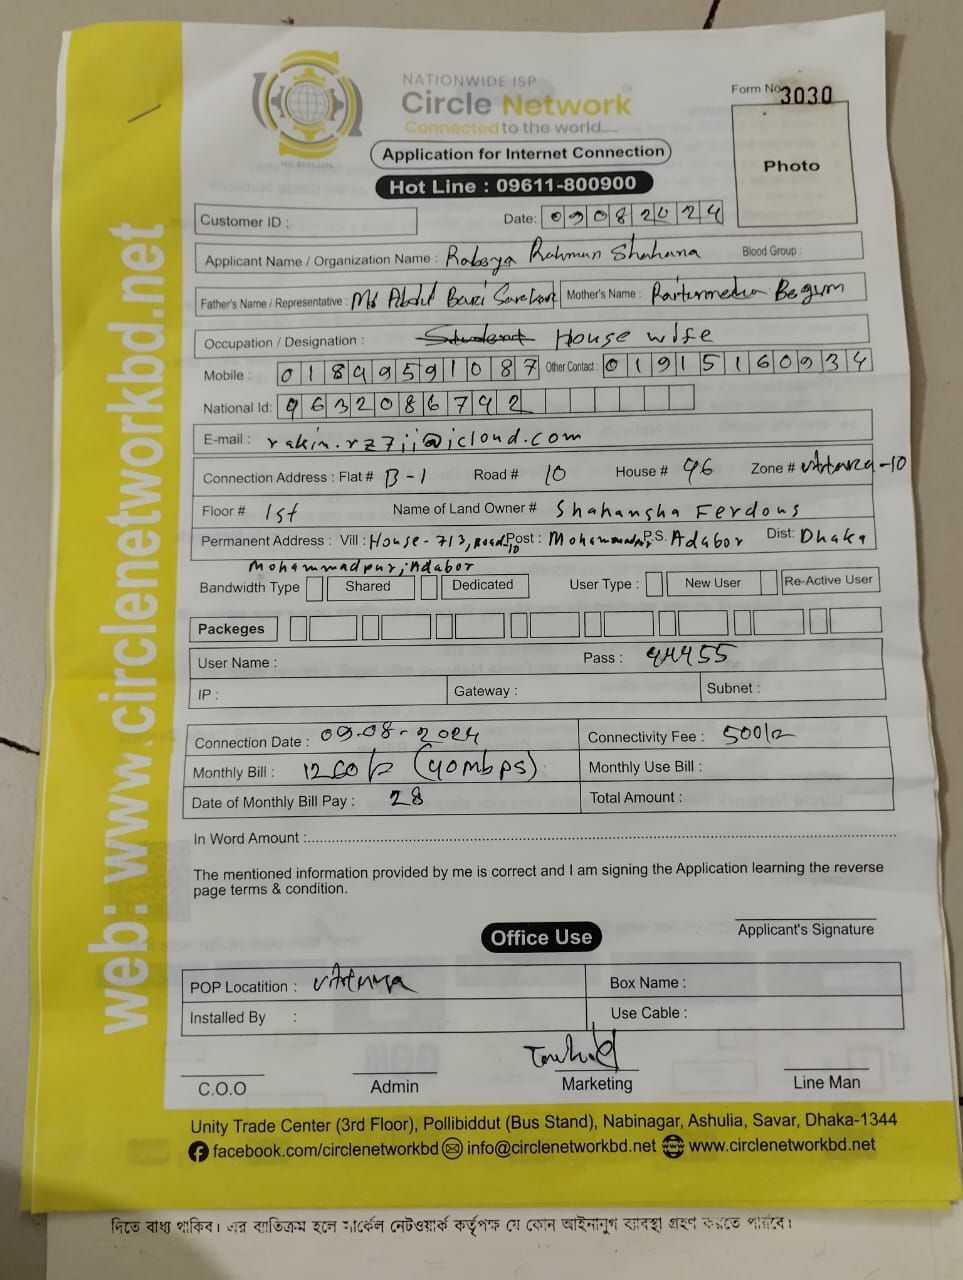 NATIONWIDE ISP
Circle Network
Connected to the world.....
Form No 3030
Application for Internet Connection
Photo
Hot Line : 09611-800900
Customer ID :
Date: 09082024
Applicant Name / Organization Name : Rabeya Rahman Shahana Blood Group :
Father's Name / Representative : Md Abdul Bari Mother's Name : Begum
Occupation / Designation : Student House wife
Mobile : 01899591087 Other Contact : 01915160934
National Id: 9632086792
E-mail : rakin.rz7ii@icloud.com
Connection Address : Flat # B-1 Road # 10 House # 96 Zone # -10
Floor # 1st Name of Land Owner # Shahansha Ferdous
Permanent Address : Vill : House-713, Road-10 Post : P.S. Adabor Dist: Dhaka
Mohammadpur, Adabor
Bandwidth Type Shared Dedicated User Type : New User Re-Active User
Packeges
User Name : Pass : 44455
IP : Gateway : Subnet :
Connection Date : 09-08-2024 Connectivity Fee : 500/=
Monthly Bill : 1200/= (40mbps) Monthly Use Bill :
Date of Monthly Bill Pay : 28 Total Amount :
In Word Amount :
The mentioned information provided by me is correct and I am signing the Application learning the reverse
page terms & condition.
Applicant's Signature
Office Use
POP Locatition : Box Name :
Installed By : Use Cable :
Towhid
C.O.O Admin Marketing Line Man
Unity Trade Center (3rd Floor), Pollibiddut (Bus Stand), Nabinagar, Ashulia, Savar, Dhaka-1344
facebook.com/circlenetworkbd info@circlenetworkbd.net www.circlenetworkbd.net
web: www.circlenetworkbd.net
দিতে বাধ্য থাকিব। এর ব্যতিক্রম হলে সার্কেল নেটওয়ার্ক কর্তৃপক্ষ যে কোন আইনানুগ ব্যবস্থা গ্রহণ করতে পারিবে।